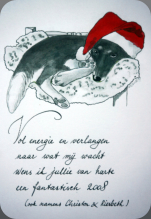 Vol energie en verlangen
naar wat mij wacht
wens ik jullie van harte
een fantastisch 2008
(ook namens Christen & Liesbeth)